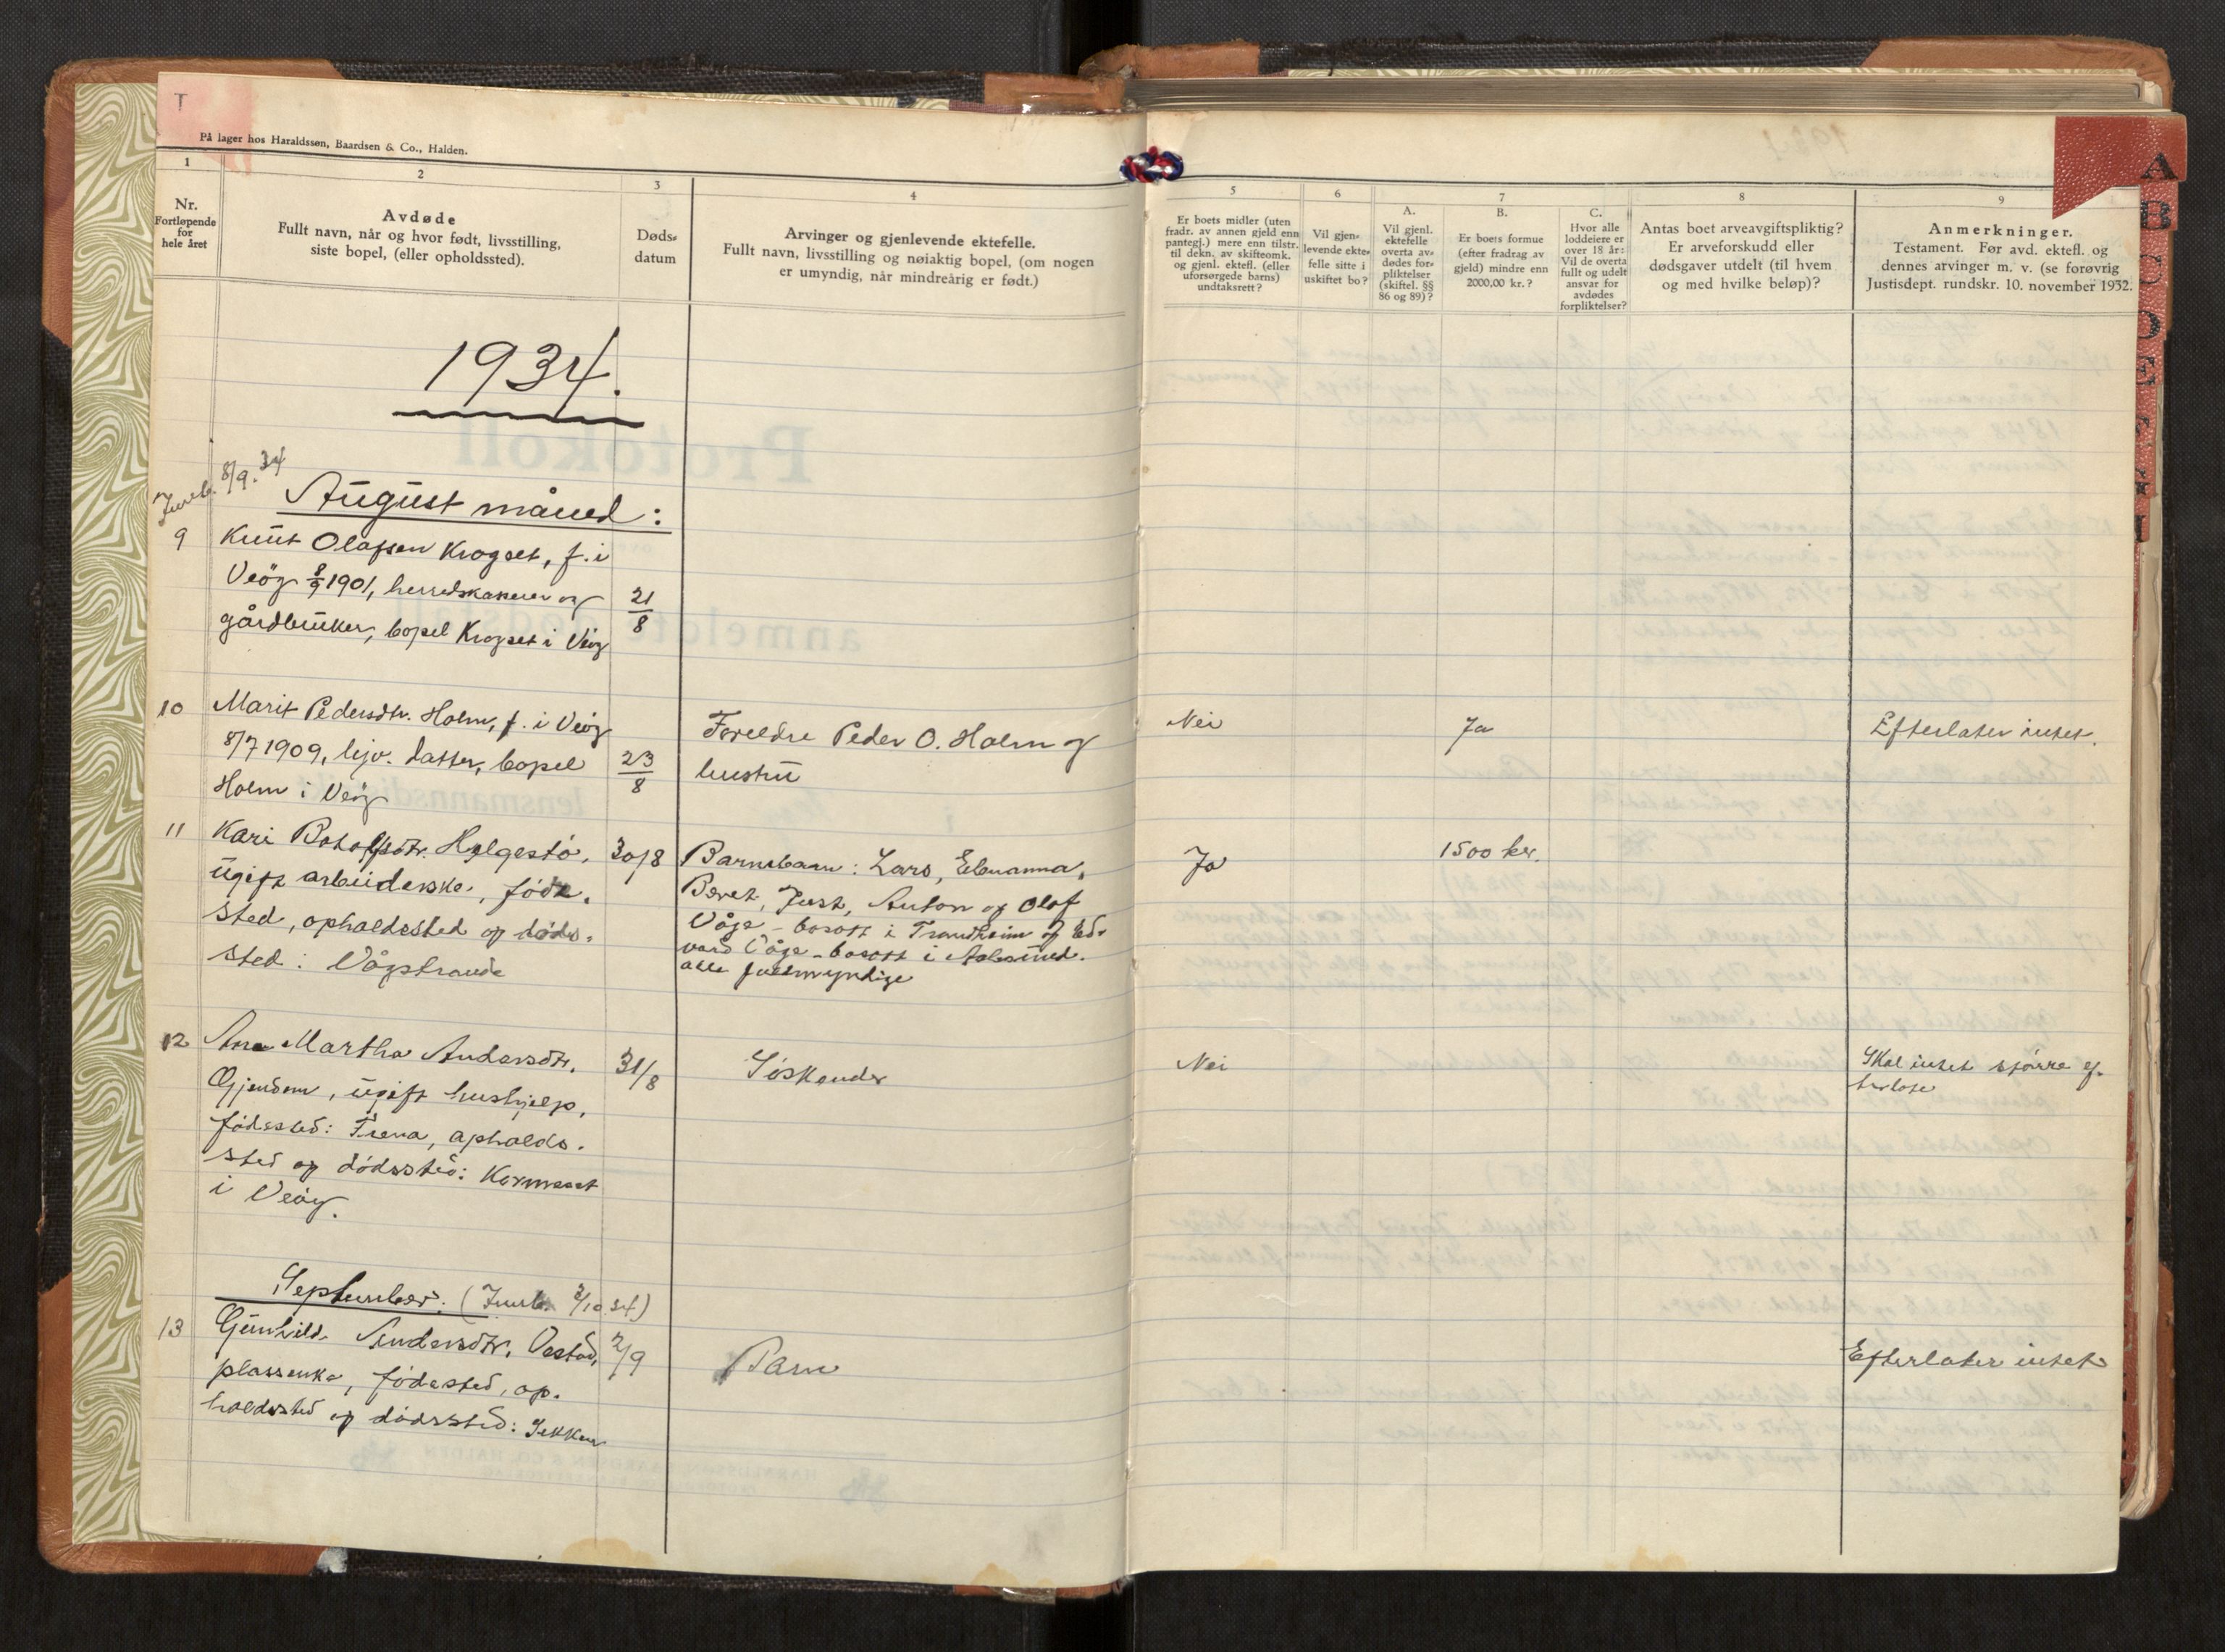 T
På lager hos Haraldssøn, Baardsen & Co., Halden.
1
2
3
4
Nr.
Fortløpende
for
hele året
Avdøde
Fullt navn, når og hvor født, livsstilling,
siste bopel, (eller opholdssted).
Døds-
datum
Arvinger og gjenlevende ektefelle.
Fullt navn, livsstilling og nøiaktig bopel, (om nogen
er umyndig, når mindreårig er født.)
1934.
8/9. 34
August måned:
9
Knut Olafsen Krogset, f. i
Veøy 8/9 1901, herredskaserer og
gårdbruker, bopel Krogset i Veøy
21/8
10
Marit Pedersdtr. Holm, f. i Veøy
8/7 1909, hjv. datter, bopel
Holm i Veøy
23/8
Foreldre Peder O. Holm og
hustru
11
Kari Botolfsdtr. Helgestø,
ugift arbeiderske, føde-
sted, opholdssted og døds-
sted: Vågstrande
30/8
Barnebarn: Lars,
Beret, Just, Anton og Olof
Våge - bosatt i Trondheim og Ed-
vard Våge - bosatt i Aalesund.
alle fullmyndige
12
Ane Martha Andersdtr.
Gjendem, ugift hushjelp,
fødested: Fræna, opholds-
sted og dødssted: Kormeset
i Veøy.
31/8
Søskender
September. (Innb. 3/10.34)
13
Gunhild Andersdtr. Oestad,
plassenke, fødested, op-
holdssted og dødssted: Sekken
2/9
Barn
5
6
7
8
9
Er boets midler (uten
fradr. av annen gjeld enn
pantegj.) mere enn tilstr.
til dekn. av skifteomk.
og gjenl. ektefl. (eller
uforsørgede barns)
undtaksrett?
Vil gjen-
levende ekte-
felle sitte i
uskiftet bo?
A.
Vil gjenl.
ektefelle
overta av-
dødes for-
pliktelser
(skiftel. §§
86 og 89)?
B.
Er boets formue
(efter fradrag av
gjeld) mindre enn
2000,00 kr.?
C.
Hvor alle
loddeiere er
over 18 år:
Vil de overta
fullt og udelt
ansvar for
avdødes
forpliktelser?
Antas boet arveavgiftspliktig?
Er arveforskudd eller
dødsgaver utdelt (til hvem
og med hvilke beløp)?
Anmerkninger.
Testament. Før avd. ektefl. og
dennes arvinger m. v. (se forøvrig
Justisdept. rundskr. 10. november 1932.
Nei
Ja
Efterlater intet.
Ja
1500 kr.
Nei
Skal intet større ef-
terlate
Efterlater intet
A
B
C
D
E